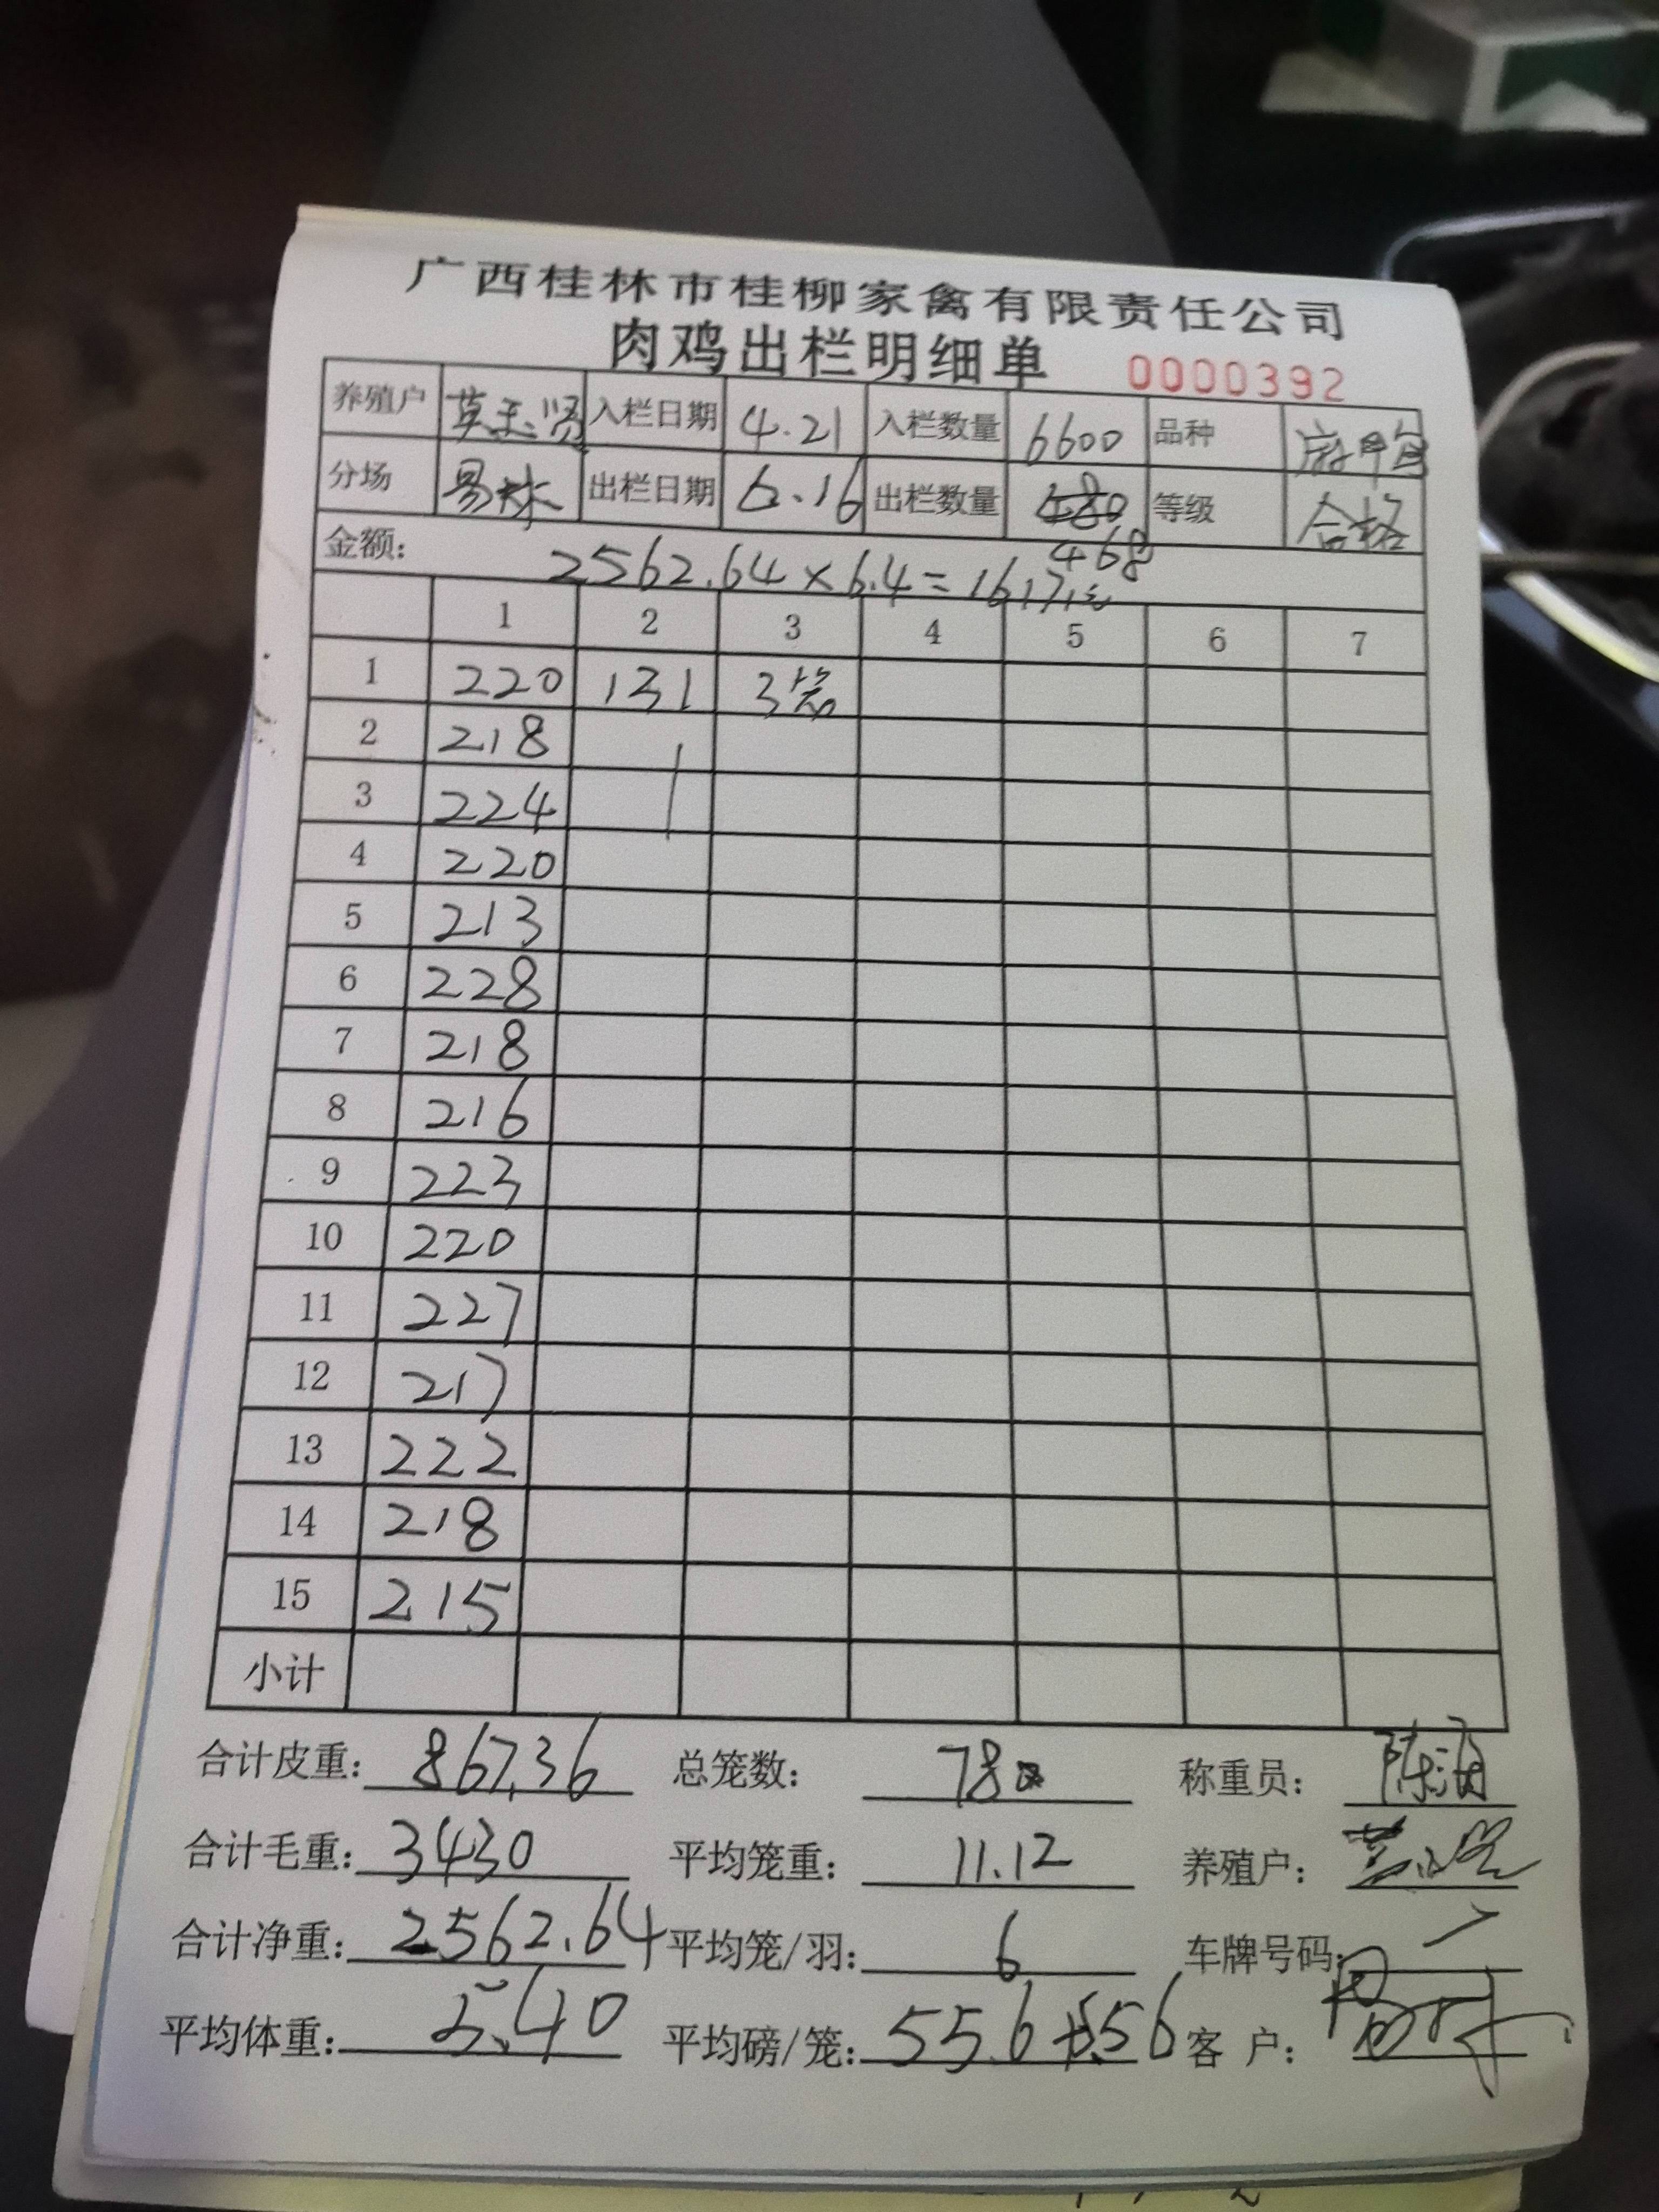 广西桂林市桂柳家禽有限责任公司
肉鸡出栏明细单 0000392
养殖户 莫玉贤 入栏日期 4.21 入栏数量 6600 品种
分场 易林 出栏日期 6.16 出栏数量 480 等级 合格
468
金额: 2562.64×6.4=16171元
1 2 3 4 5 6 7
1 220 131 3笼
2 218
3 224
4 220
5 213
6 228
7 218
8 216
9 223
10 220
11 227
12 217
13 222
14 218
15 215
小计
合计皮重: 867.36 总笼数: 78 称重员: 陈海
合计毛重: 3430 平均笼重: 11.12 养殖户:
合计净重: 2562.64 平均笼/羽: 6 车牌号码:
平均体重: 5.40 平均磅/笼: 55.6 5.56 客 户: